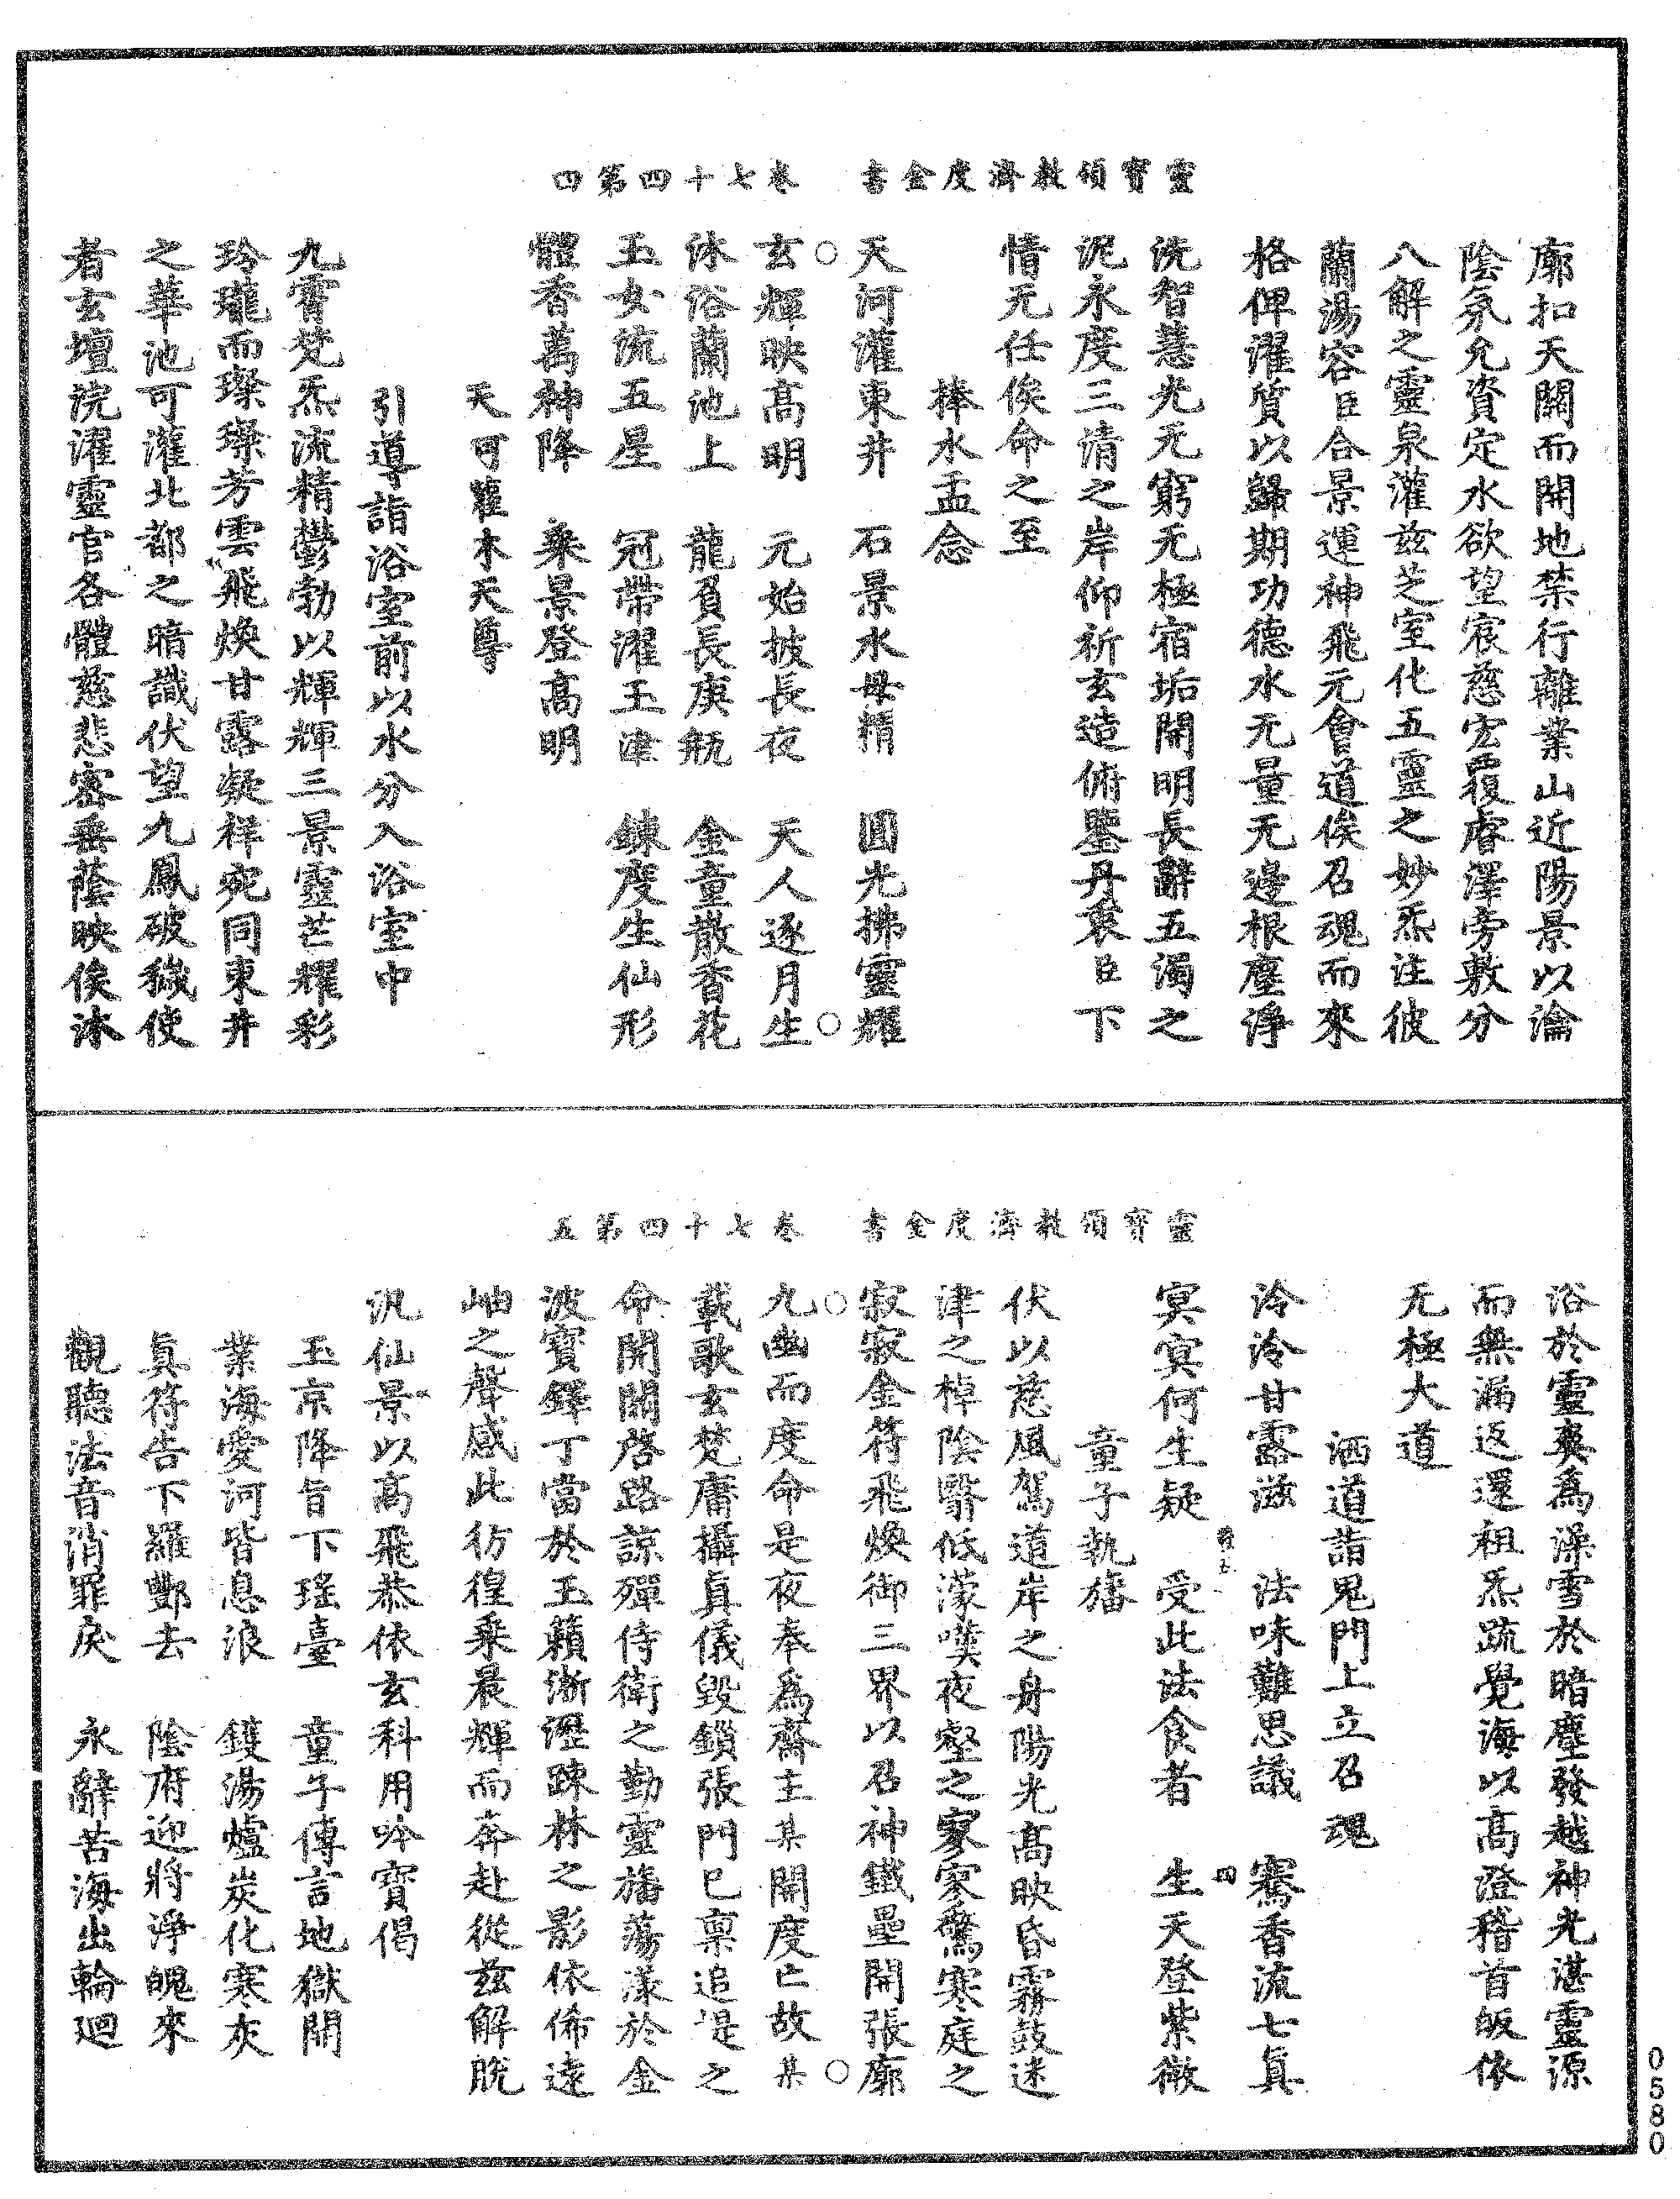 靈寶領教濟度金書　卷七十四第四
廓扣天關而開地禁行離業山近陽景以瀹
陰氛允資定水欲望宸慈宏覆睿澤旁敷分
八解之靈泉灌茲芝室化五靈之妙炁注彼
蘭湯容臣合景運神飛元會道俟召魂而來
格俾濯質以歸期功德水无量无邊根塵淨
洗智慧光无窮无極宿垢開明長辭五濁之
泥永度三清之岸仰祈玄造俯鑒丹衷臣下
情无任俟命之至
捧水盂念
天河灌東井　石景水母精　圓光拂靈耀
玄輝映高明　元始披長夜　天人逐月生
沐浴蘭池上　龍負長庚瓶　金童散香花
玉女流五星　冠帶濯玉津　鍊度生仙形
體香萬神降　乘景登高明
天可灌木天尊
引導詣浴室前以水分入浴室中
九霄梵炁流精鬱勃以輝輝三景靈芒耀彩
玲瓏而璨璨芳雲飛煥甘露凝祥宛同東井
之華池可灌北都之暗識伏望九鳳破穢使
者玄壇浣濯靈官各體慈悲密垂蔭映俟沐
靈寶領教濟度金書　卷七十四第五
浴於靈爽爲澡雪於暗塵發越神光湛靈源
而無漏返還祖炁疏覺海以高澄稽首皈依
无極大道
洒道詣鬼門上立召魂
泠泠甘露滋　法味難思議　騫香流七眞
冥冥何生疑　受此法食者　生天登紫微
童子執旛
伏以慈風駕道岸之身陽光高映昏霧鼓迷
津之棹陰翳低濛嘆夜壑之寥寥驚寒庭之
寂寂金符飛煥御三界以召神鐵壘開張廓
九幽而度命是夜奉爲齋主某開度亡故某
載歌玄梵庸攝眞儀毀鎖張門已稟追提之
命開關啓路諒殫侍衛之勤靈旛蕩漾於金
波寶鐸丁當於玉籟漸瀝踈林之影依俙遠
岫之聲感此彷徨乘晨輝而奔赴從茲解脫
汎仙景以高飛恭依玄科用吟寶偈
玉京降旨下瑤臺　童子傳言地獄開
業海愛河皆息浪　鑊湯爐炭化寒灰
眞符告下羅酆去　陰府迎將淨魄來
觀聽法音消罪戾　永辭苦海出輪迴
0580